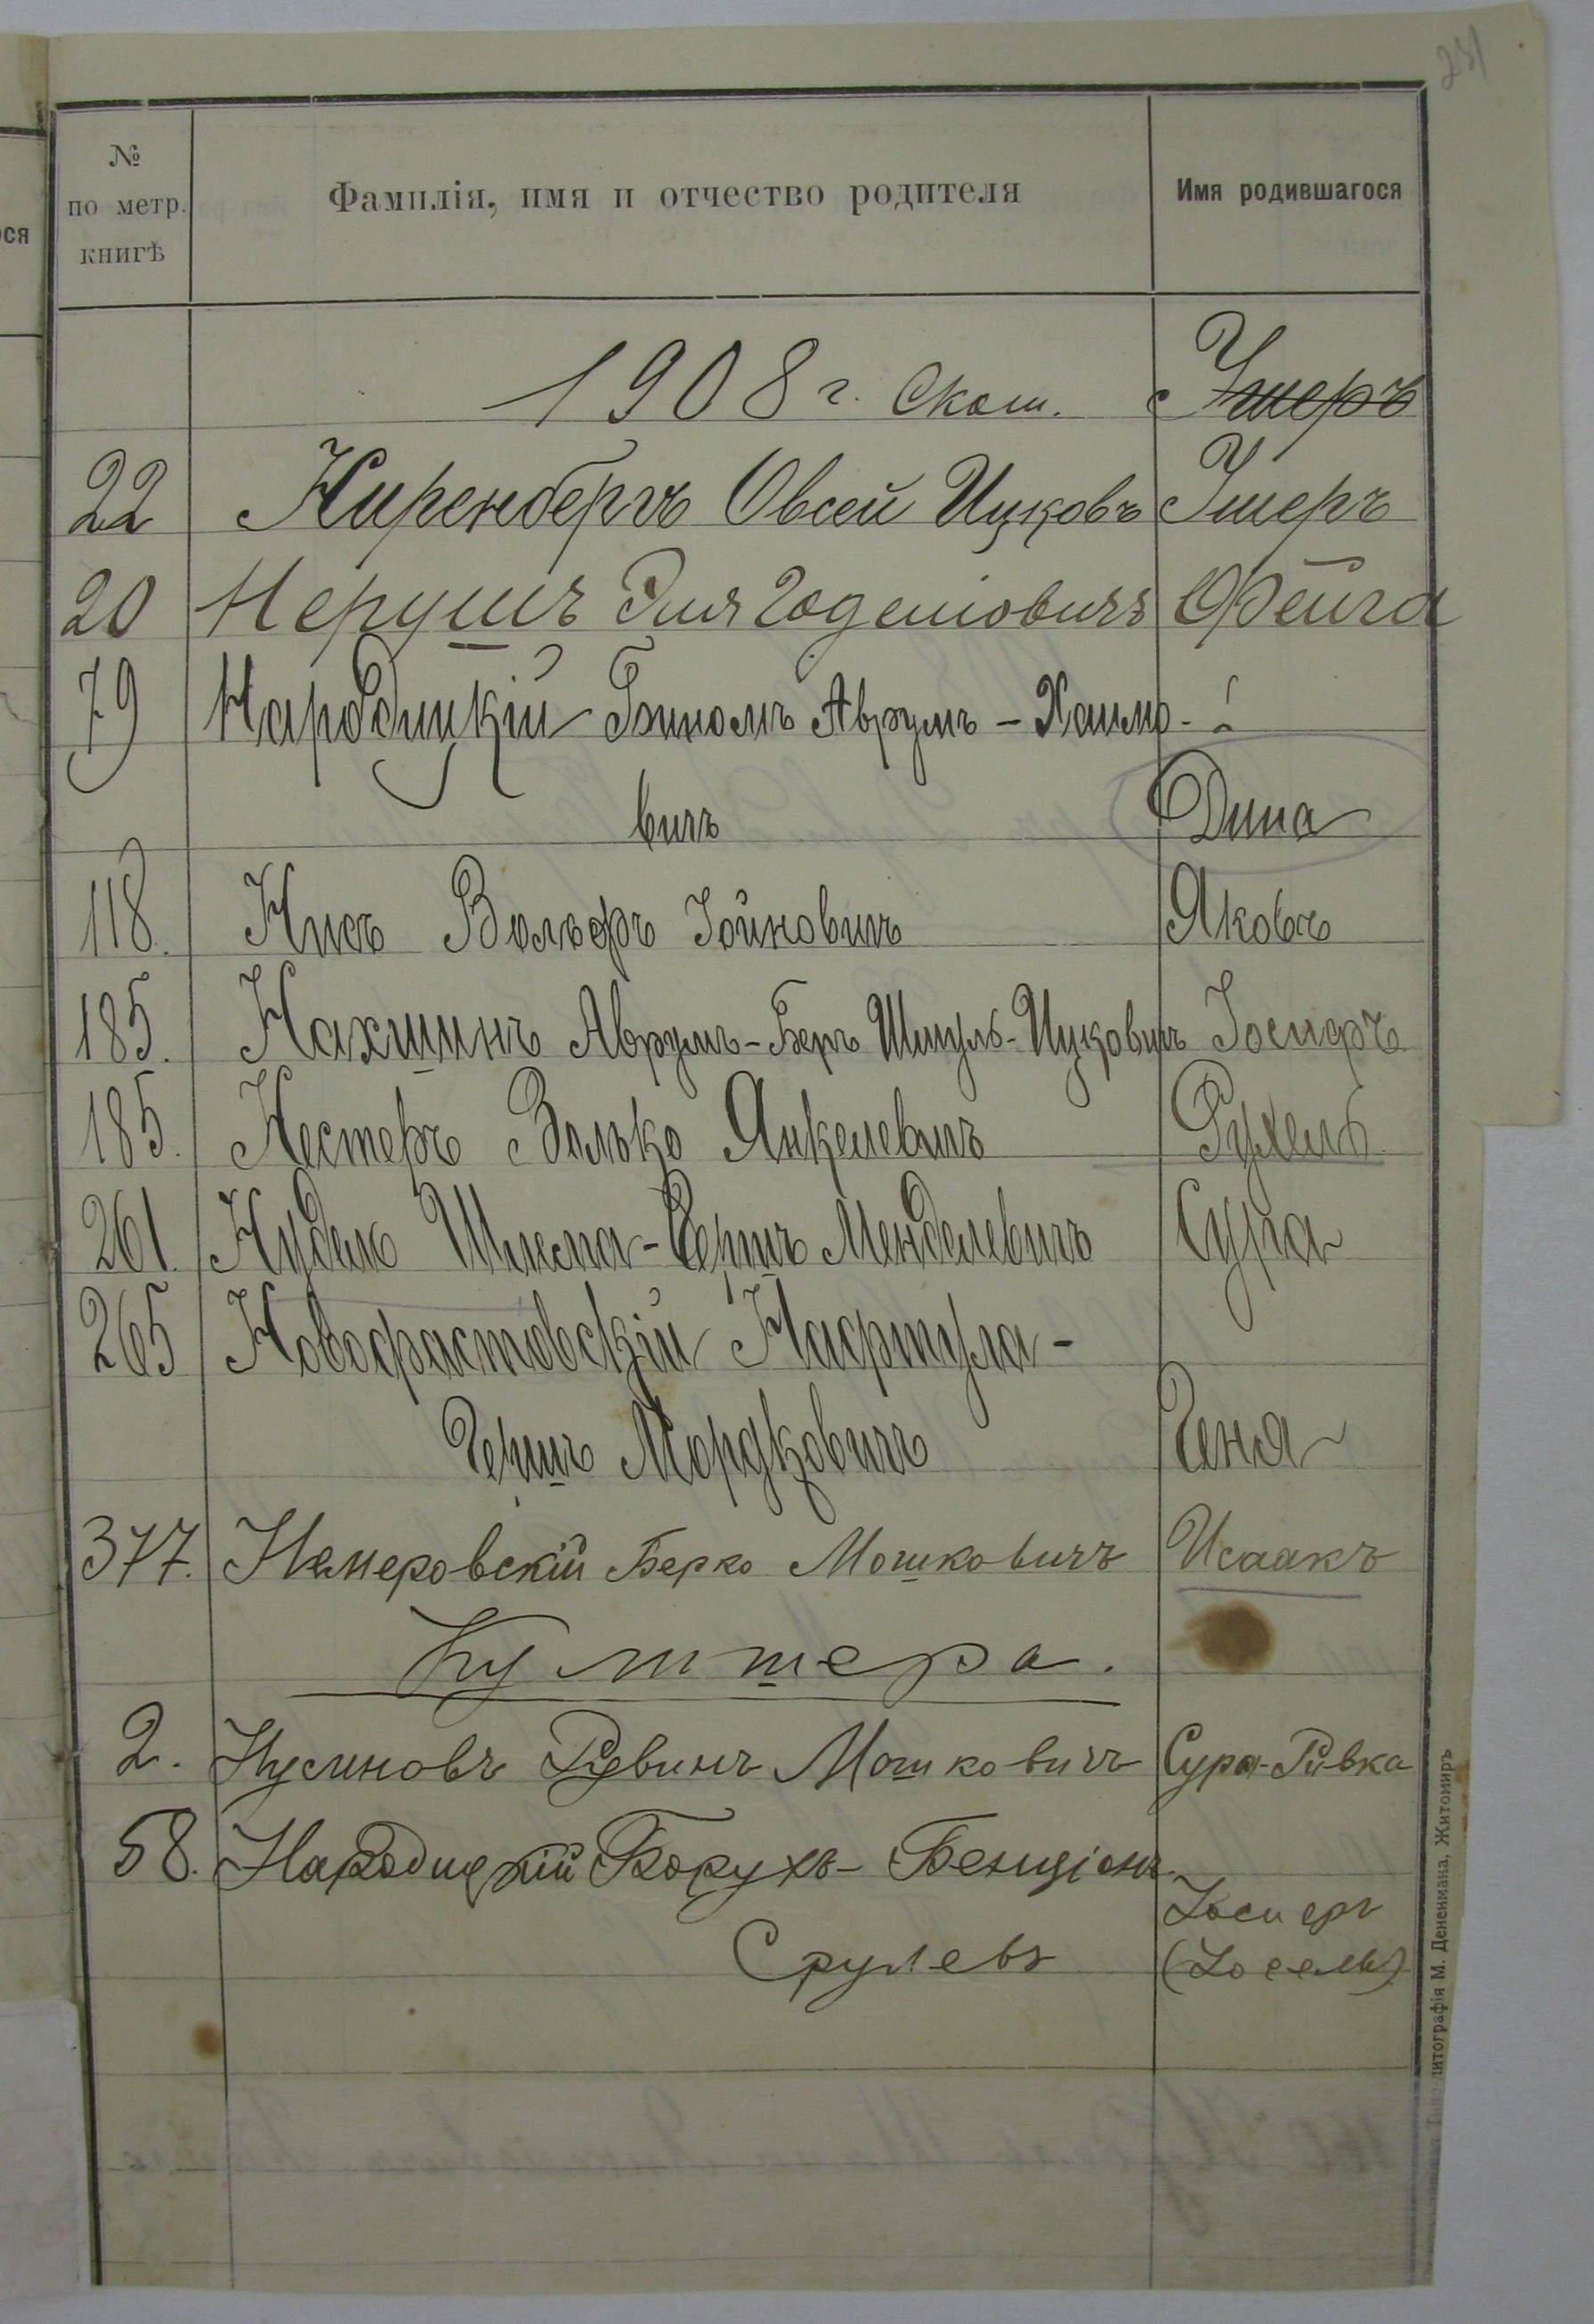 231
№
по метр.
книгѣ
Фамилія, имя и отчество родителя
Имя родившагося
ося
1908 г. Скош. Умеръ
22 Ниренбергъ Овсей Ицковъ Умеръ
20 Нерушъ Эля Годеліовичъ Фейга
79 Народицкій Биномъ Аврумъ-Хаимо-
вичъ Дина
118. Нисъ Вольфъ Іойновичъ Яковъ
185. Нахшинъ Аврумъ-Беръ Шмуль-Ицковичъ Іосифъ
185. Нестеръ Волько Янкелевичъ Рухель
261. Нудель Шлема-Гершъ Менделевичъ Сура
265 Новофастовскій Нафтула-
Гершъ Мордковичъ Геня
377. Немеровскій Берко Мошковичъ Исаакъ
Культера.
2. Нусиновъ Рувинъ Мошковичъ Сура-Ривка
58. Народицкій Борухъ-Бенціонъ
Срулевъ Іосифъ
(Іосель)
литографія М. Дененмана, Житомиръ